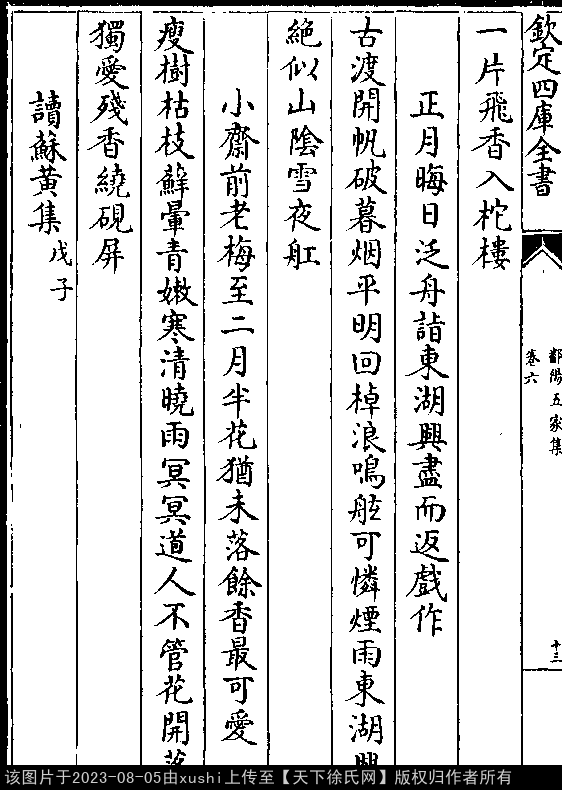 欽定四庫全書
鄱陽五家集
卷六
十三
一片飛香入柁樓
正月晦日泛舟詣東湖興盡而返戲作
古渡開帆破暮烟平明回棹浪鳴舷可憐煙雨東湖興
絕似山陰雪夜舡
小齋前老梅至二月半花猶未落餘香最可愛
瘦樹枯枝蘚暈青嫩寒清曉雨冥冥道人不管花開落
獨愛殘香繞硯屏
讀蘇黃集戊子
该图片于2023-08-05由xushi上传至【天下徐氏网】版权归作者所有